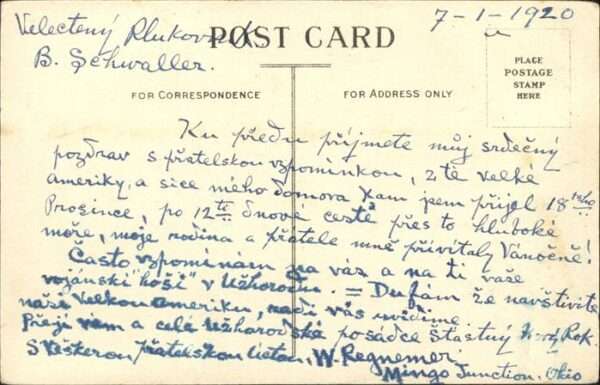 7-1-1920
Velectený Plukovník
B. Schwaller.
POST CARD
PLACE
POSTAGE
STAMP
HERE
FOR CORRESPONDENCE
FOR ADDRESS ONLY
Ku předu příjmete můj srdečný
pozdrav s přatelskou vzpomínkou, z té velké
ameriky, a sice mého domova kam jsem přijel 18tého
Prosince, po 12ti dnové cestě přes to hluboké
moře, moje rodina a přátele mně přivítaly Vánočně!
Často vzpomínám na vás a na ti vaše
vojánski "hoši" v Užhorodu. = Dufám že navštivíte
naší Velkou Ameriku, radi vás uvidíme.
Přeji vám a celé Užhorodské posádce štastný Nový Rok.
S Veškerou přatelskou uctou, W. Regnemer
Mingo Junction. Ohio